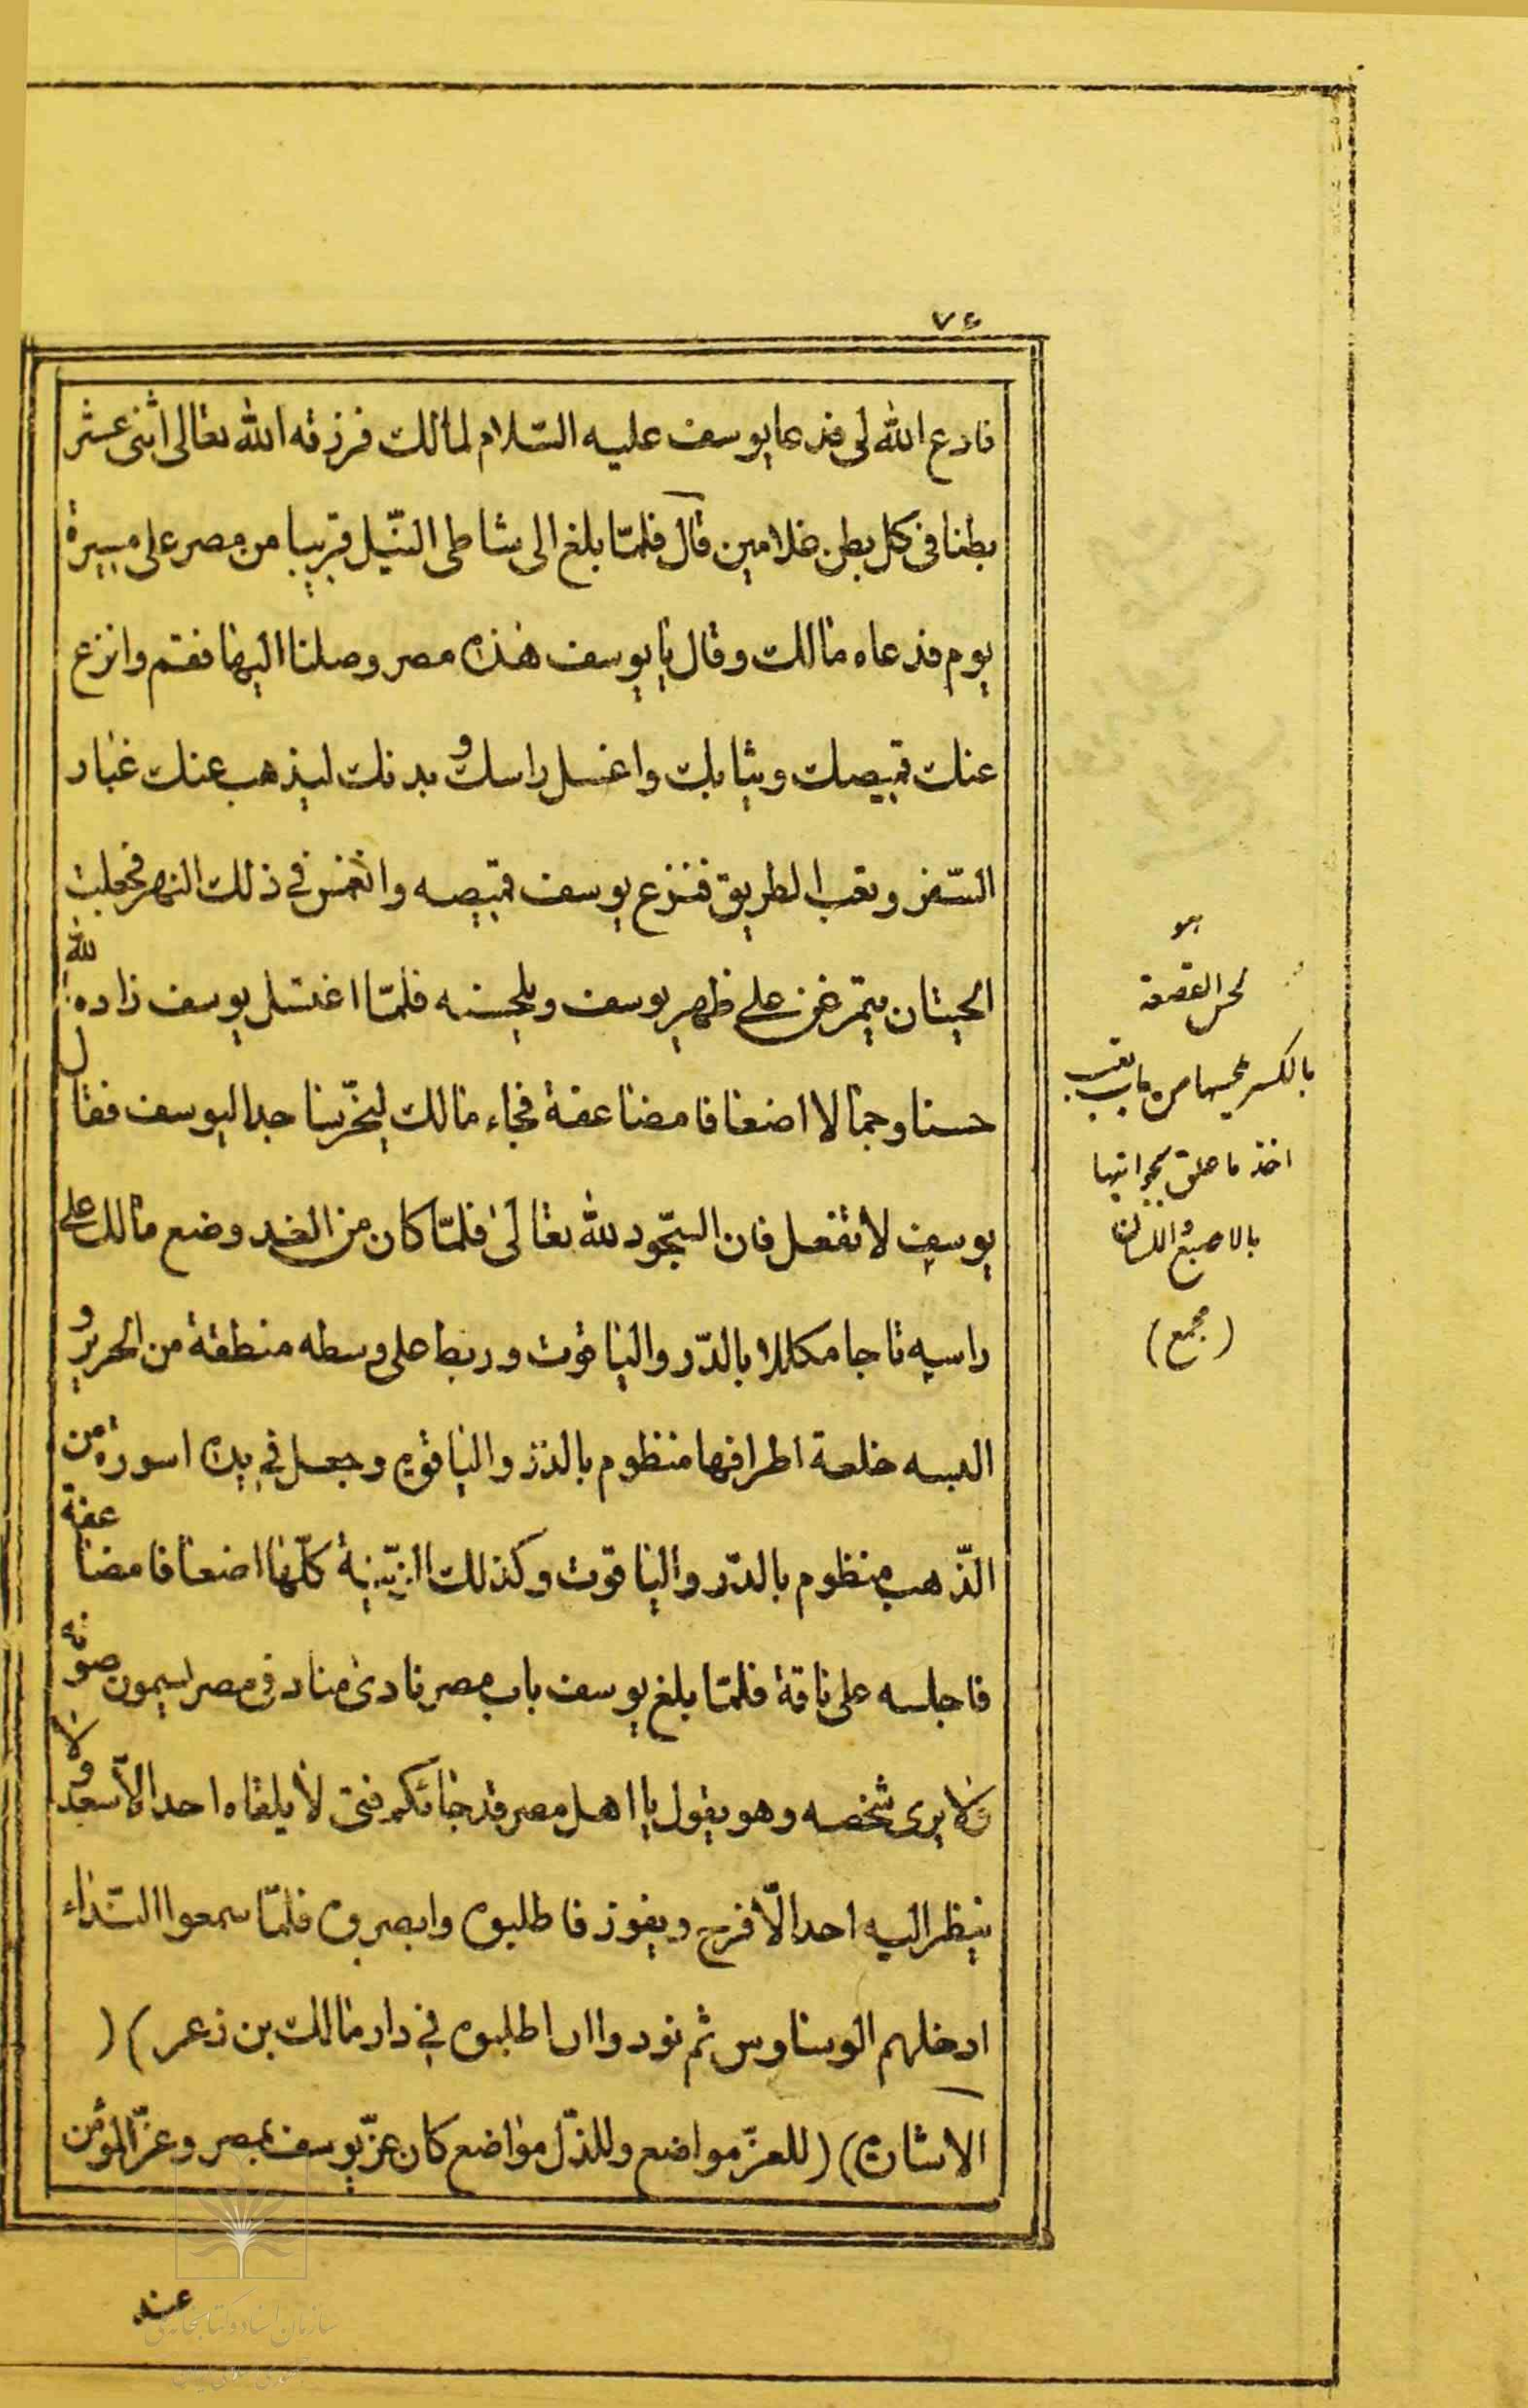 ٧٤
فادع الله لى فدعا يوسف عليه السّلام لمالك فرزقه الله تعالى اثنى عشر
بطنا فى كل بطن غلامين قال فلمّا بلغ الى شاطى النّيل قريبا من مصر على مسيرة
يوم فدعاه مالك وقال يا يوسف هذه مصر وصلنا اليها فقم وانزع
عنك قميصك وثيابك واغسل راسك و بدنك ليذهب عنك غبار
السّفر وتعب الطريق فنزع يوسف قميصه وانغمس في ذلك النهر فجعلت
الحيتان يتمرغن على ظهر يوسف ويلحسنه فلمّا اغتسل يوسف زاده الله
حسنا وجمالا اضعافا مضاعفة فجاء مالك ليخرّ ساجدا ليوسف فقال
يوسف لا تفعل فان السّجود لله تعالى فلمّا كان من الغد وضع مالك على
راسه تاجا مكللا بالدّر والياقوت وربط على وسطه منطقة من الحرير و
البسه خلعة اطرافها منظوم بالدّر والياقوه وجعل في يده اسورة من
الذّهب منظوم بالدّر والياقوت وكذلك الزّينة كلّها اضعافا مضاعفة
فاجلسه على ناقة فلمّا بلغ يوسف باب مصر نادى مناد فى مصر يسمعون صوته
ولا يرى شخصه وهو يقول يا اهل مصر قد جائكم فتى لا يلقاه احد الّا سعد ولا
ينظر اليه احد الّا فرح ويفوز فاطلبوه وابصروه فلمّا سمعوا النّداء
ادخلهم الوسناوس ثم نودوا ان اطلبوه في دار مالك بن زعر ) (
الاشارة) (للعزّ مواضع وللذّل مواضع كان عزّ يوسف بمصر وعزّ المؤمن
عند
لحس القصعة
بالكسر يلحسها من باب تعب
اخذ ما علق بجوانبها
بالاصبع و اللسان
(مجمع)